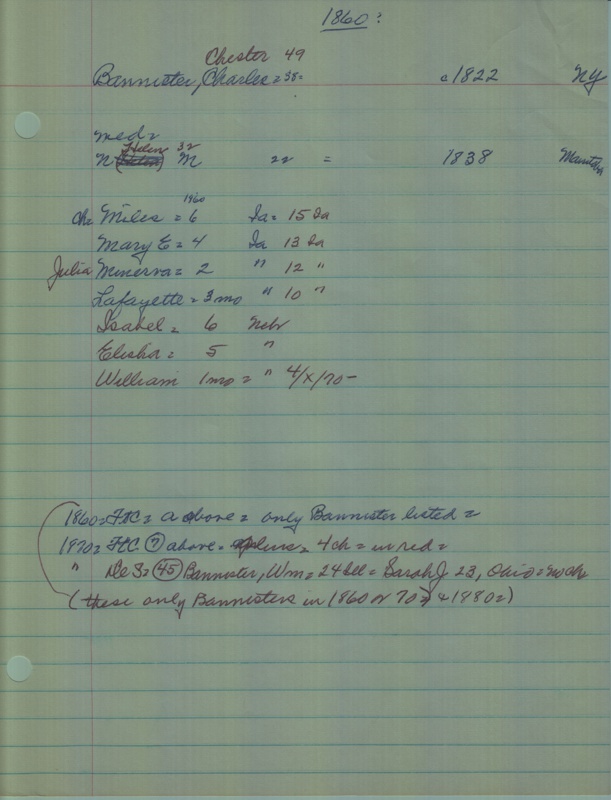 1860:
Chester 49
Bannister, Charles = 38 = c1822 NY
med =
Helen 32
N M 22 = 1838
1960
ch = Miles = 6 Ia = 15 Ia
Mary E = 4 Ia 13 Ia
Julia Minerva = 2 " 12 "
Lafayette = 3mo " 10 "
Isabel = 6 Nebr
Elisha = 5 "
William 1mo = " 4/X/70 -
1860 = FTC = a above = only Bannister listed =
1970 = FTC (7) above = plus = 4 ch = in red =
" De S = (45) Bannister, Wm = 24 Ill = Sarah J 23, Ohio = no ch
(these only Bannisters in 1860 or 70 & 1880 =)